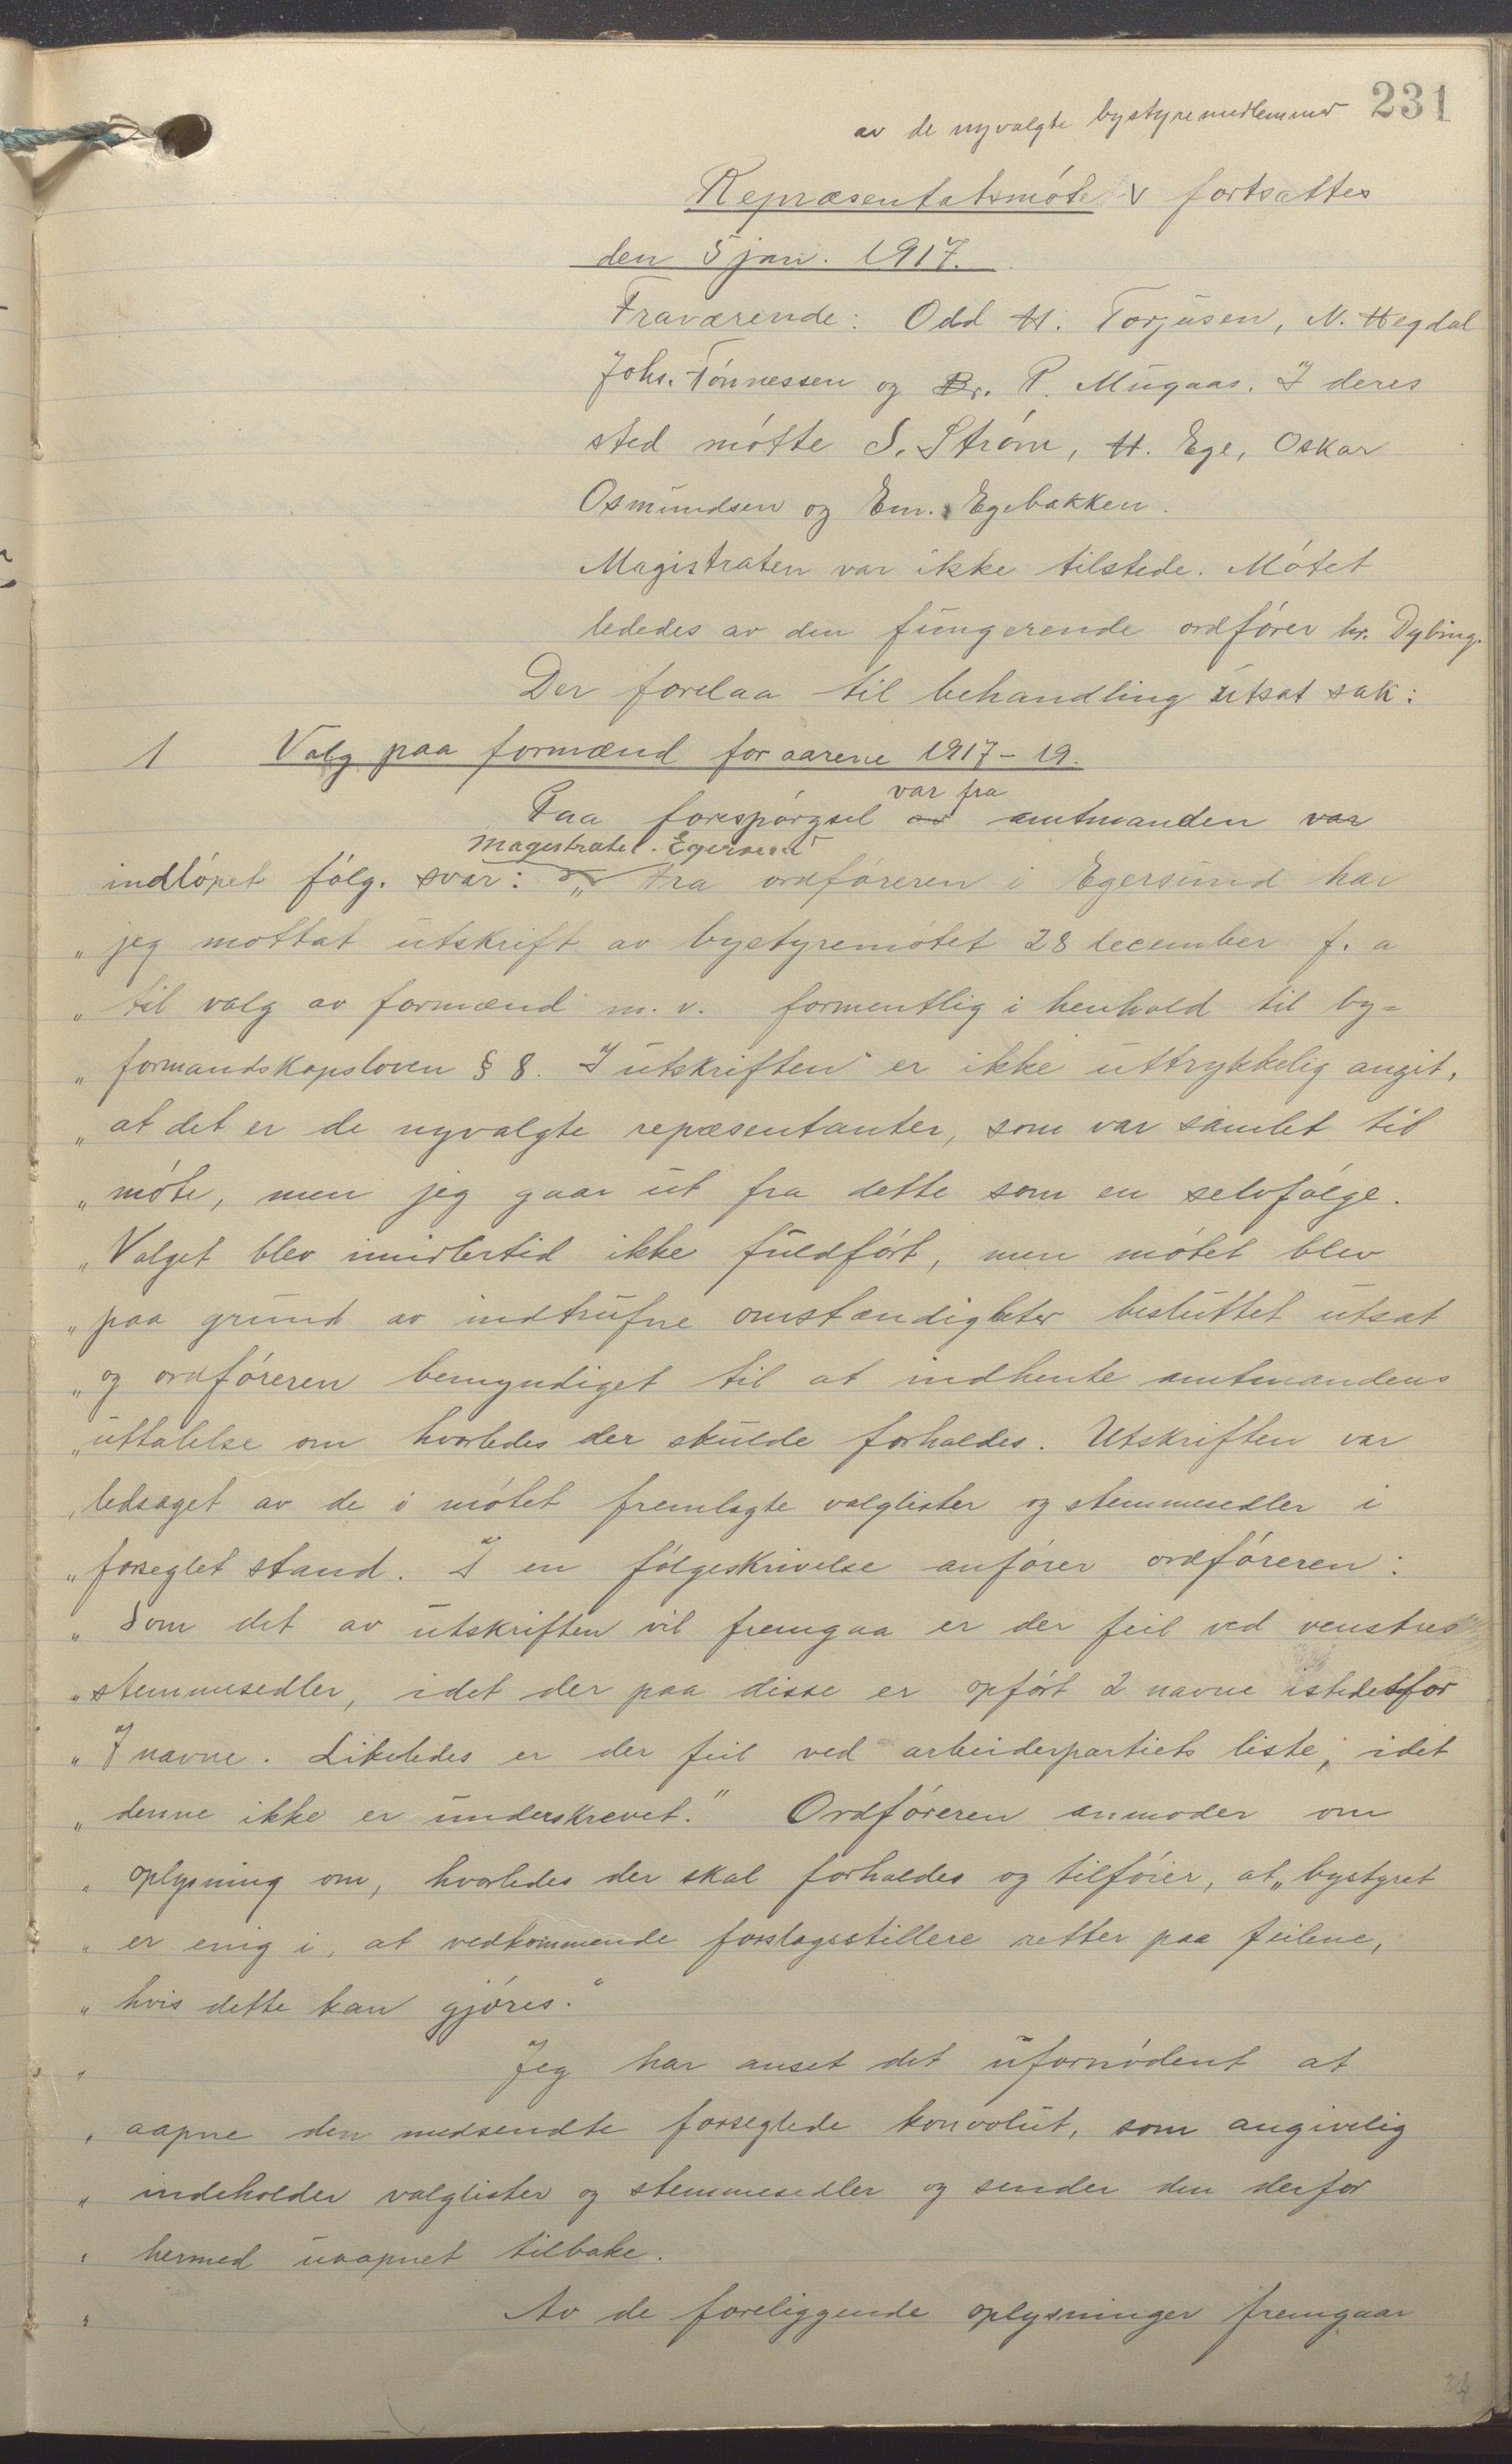 231
av de nyvalgte bystyremedlemmer
Repræsentatsmøte v fortsattes
den 5 jan. 1917.
Fraværende: Odd H. Torjusen, N. Hegdal
Johs. Tønnessen og Br. P. Mugaas. I deres
sted møtte S. Strøm, H. Ege, Oskar
Osmundsen og Em. Egebakken.
Magistraten var ikke tilstede. Møtet
lededes av den fungerende ordfører hr. Dybing.
Der forelaa til behandling utsat sak:
1 Valg paa formænd for aarene 1917-19.
var fra
Paa forespørgsel av amtmanden var
Magistratel. Egersund
indløpet følg. svar: „ Fra ordføreren i Egersund har
„ jeg mottat utskrift av bystyremøtet 28 december f. a
„ til valg av formænd m. v. formentlig i henhold til by=
„ formandskapsloven § 8. I utskriften er ikke uttrykkelig angit,
„ at det er de nyvalgte repæsentanter, som var samlet til
„ møte, men jeg gaar ut fra dette som en selvfølge.
„ Valget blev imidlertid ikke fuldført, men møtet blev
„ paa grund av indtrufne omstændigheter besluttet utsat
„ og ordføreren bemyndiget til at indhente amtmandens
„ uttalelse om hvorledes der skulde forholdes. Utskriften var
„ ledsaget av de i møtet fremlagte valglister og stemmesedler i
„ forseglet stand. I en følgeskrivelse anfører ordføreren:
„ Som det av utskriften vil fremgaa er der feil ved venstres
„ stemmesedler, idet der paa disse er opført 2 navne istedetfor
„ 7 navne. Likeledes er der feil ved arbeiderpartiets liste, idet
„ denne ikke er underskrevet." Ordføreren anmoder om
„ oplysning om, hvorledes der skal forholdes og tilføier, at „bystyret
„ er enig i, at vedkommende forslagsstillere retter paa feilene,
„ hvis dette kan gjøres."
„ Jeg har anset det ufornødent at
„ aapne den medsendte forseglede konvolut, som angivelig
„ indeholder valglister og stemmesedler og sender den derfor
„ hermed uaapnet tilbake.
„ Av de foreliggende oplysninger fremgaar